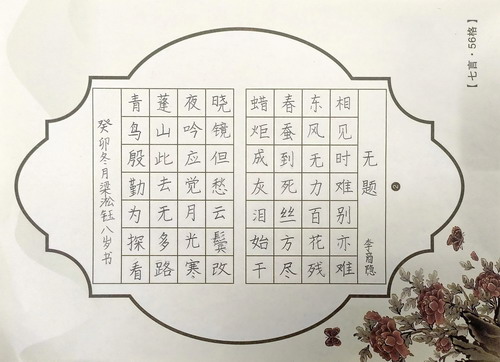 【七言·56格】
2
无题
李商隐
相见时难别亦难
东风无力百花残
春蚕到死丝方尽
蜡炬成灰泪始干
晓镜但愁云鬓改
夜吟应觉月光寒
蓬山此去无多路
青鸟殷勤为探看
癸卯冬月梁淞钰八岁书